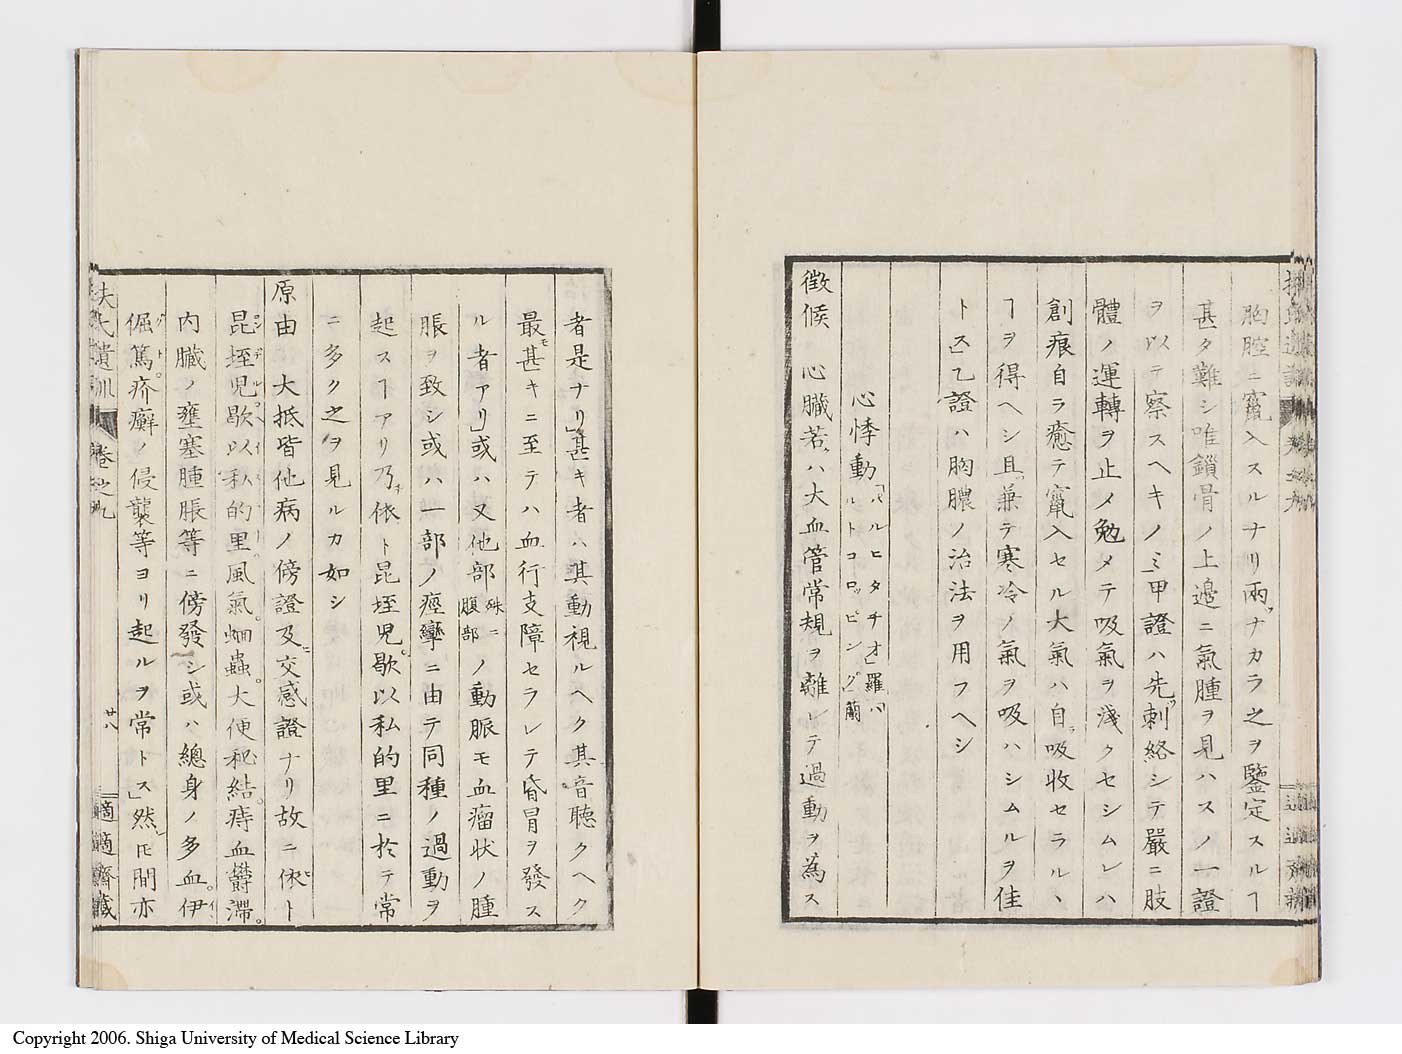 胸腔ニ竄入スルナリ両ナカラ之ヲ鑒定スルヿ
甚タ難シ唯鎖骨ノ上邉ニ氣腫ヲ見ハスノ一證
ヲ以テ察スヘキノミ甲證ハ先ツ刺絡シテ嚴ニ肢
體ノ運轉ヲ止メ勉メテ吸氣ヲ淺クセシムレハ
創痕自ラ癒テ竄入セル大氣ハ自ラ吸收セラルヽ
ヿヲ得ヘシ且ツ兼テ寒冷ノ氣ヲ吸ハシムルヲ佳
トス」乙證ハ胸膿ノ治法ヲ用フヘシ
心悸動
徴候 心臓若クハ大血管常規ヲ離レテ過動ヲ為ス
者是ナリ」甚キ者ハ其動視ルヘク其音聴クヘク
最モ甚キニ至テハ血行支障セラレテ昏冒ヲ發ス
ル者アリ」或ハ又他部殊ニ腹部ノ動脈モ血瘤状ノ腫
脹ヲ致シ或ハ一部ノ痙攣ニ由テ同種ノ過動ヲ
起スヿアリ乃チ依ト昆垤児歇以私的里ニ於テ常
ニ多ク之ヲ見ルカ如シ
原由 大抵皆他病ノ傍證及ヒ交感證ナリ故ニ依ト
昆垤児歇以私的里風氣蛔蟲大便秘結痔血欝滞
内臓ノ壅塞腫脹等ニ傍發シ或ハ總身ノ多血伊
倔篤疥癬ノ侵襲等ヨリ起ルヲ常トス」然レ𪜈間亦
扶氏遺訓 巻之九 廿八 適適齋藏